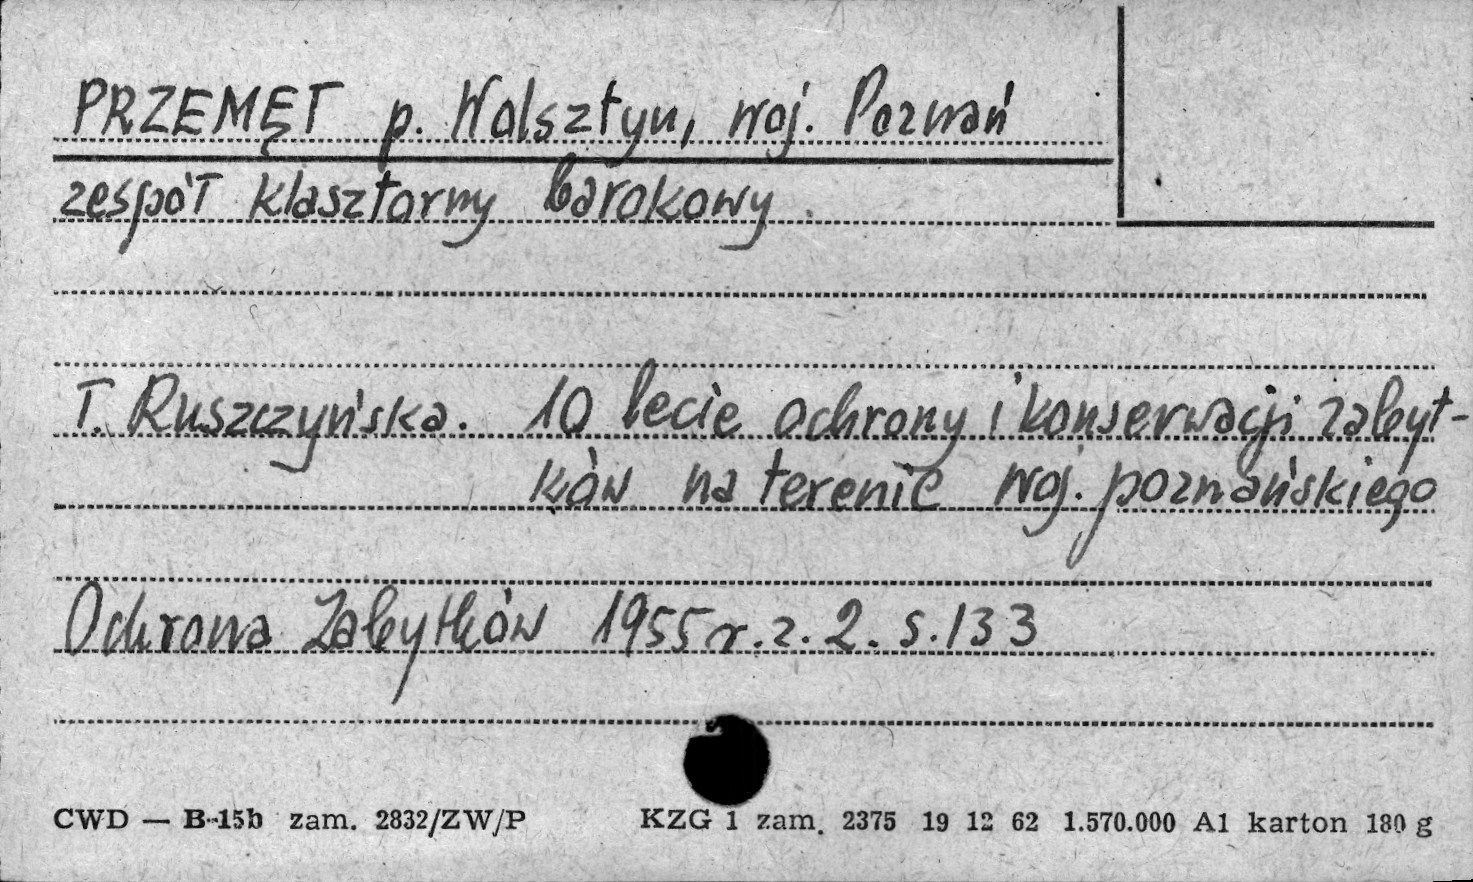 PRZEMĘT p. Wolsztyn, woj. Poznań
zespół klasztorny barokowy.
T. Ruszczyńska. 10 lecie ochrony i konserwacji zabyt-
ków na terenie woj. poznańskiego
Ochrona Zabytków 1955 r. z. 2. s. 133
CWD — B-15b zam. 2832/ZW/P KZG 1 zam. 2375 19 12 62 1.570.000 A1 karton 180 g